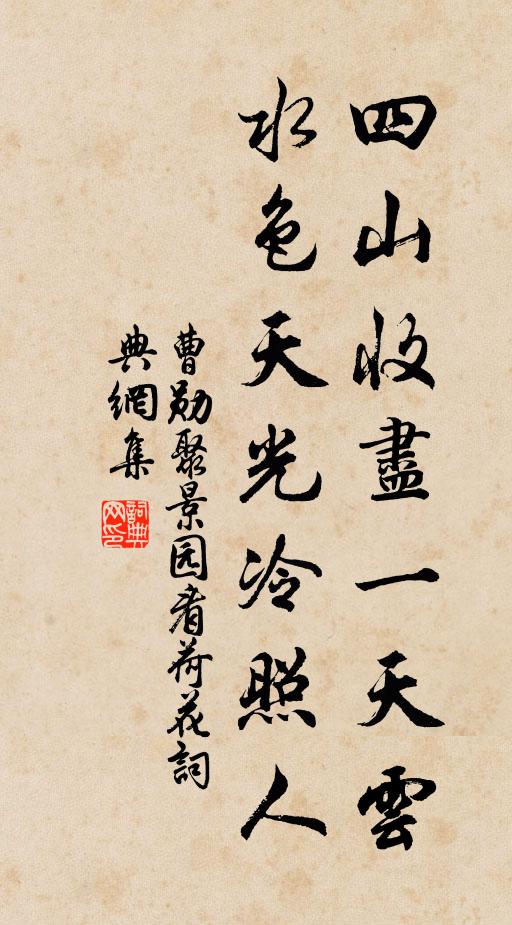 四山收盡一天雲
水色天光冷照人
曹勛聚景园看荷花詞
典網集
詞典网印